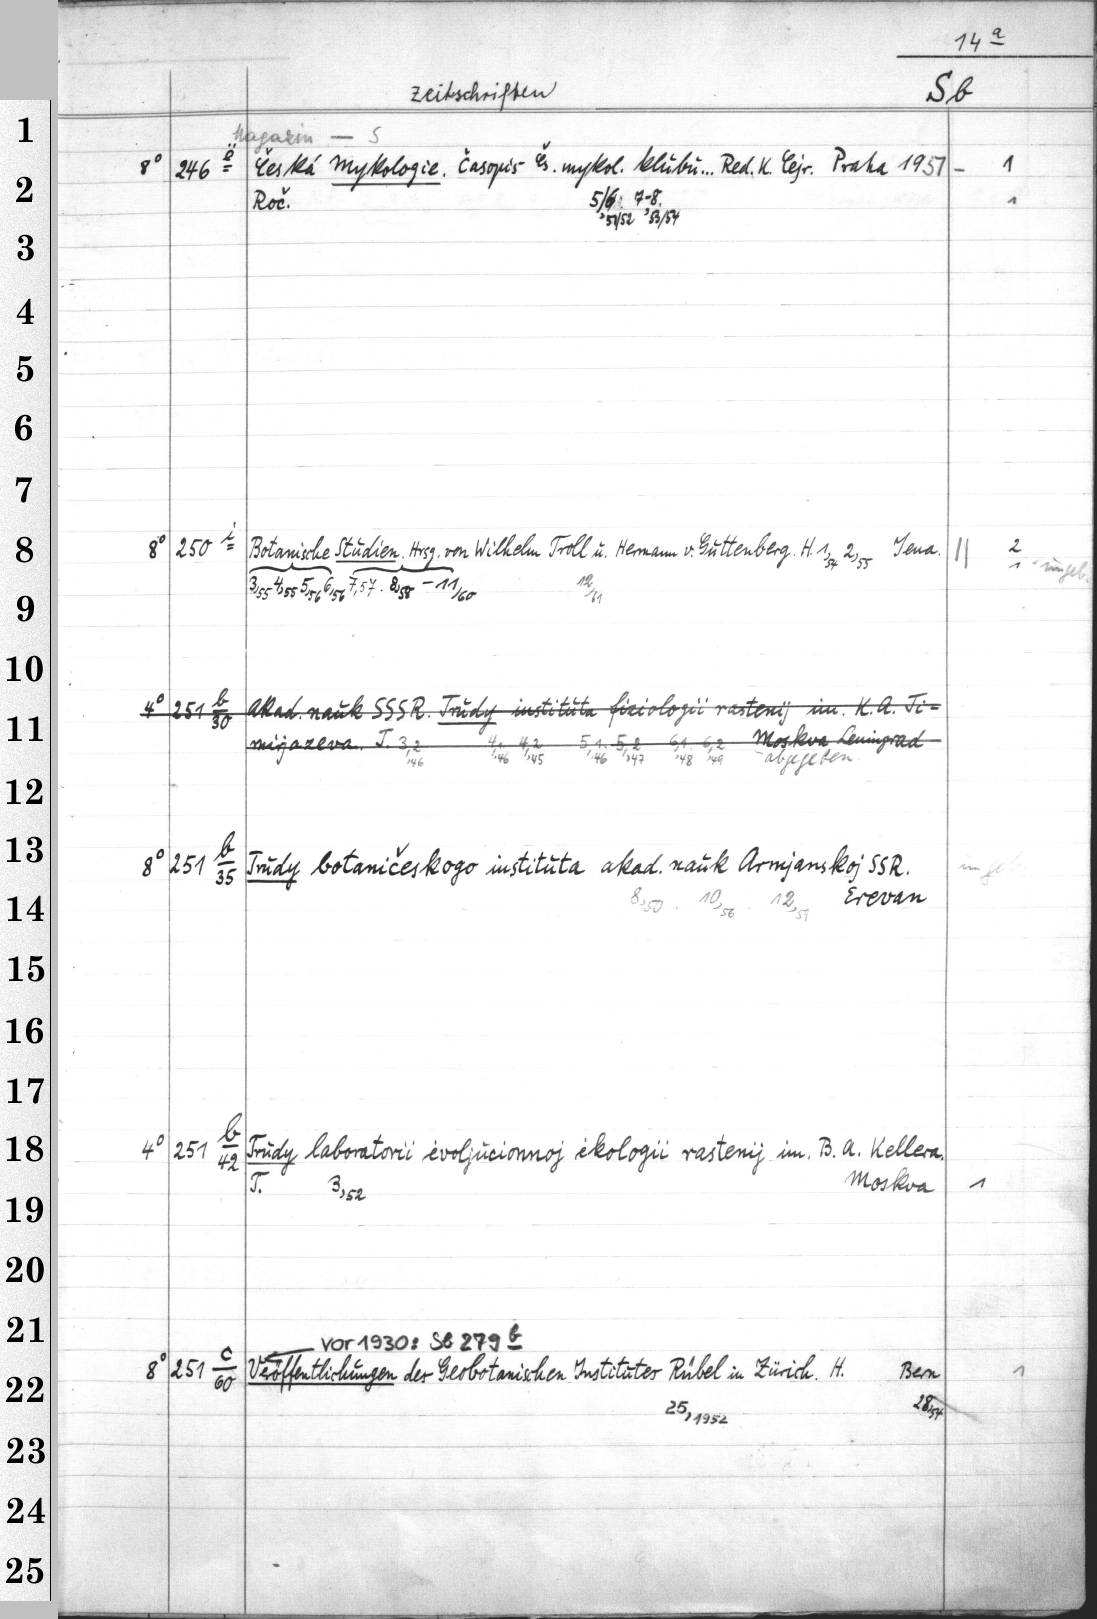 14 a
Zeitschriften Sb
1
Magazin — S
8° 246 ë Česká Mykologie. Časopis Čs. mykol. klubu... Red. K. Cejr. Praha 1951 – 1
2 Roč. 5/6, '51/52 7-8. '53/54 1
3
4
5
6
7
8 8° 250 i Botanische Studien. Hrsg. von Wilhelm Troll u. Hermann v. Guttenberg. H. 1,54 2,55 Jena. || 2
3,55 4,55 5,56 6,56 7,57. 8,58 – 11/60 12/61 1 ungeb.
9
10
4° 251 b/30 Akad. nauk SSSR. Trudy instituta fiziologii rastenij im. K. A. Ti=
11 mirjazeva. T. 3,2,46 4,1,46 4,2,45 5,1,46 5,2,47 6,1,48 6,2,49 Moskva Leningrad
abgegeben
12
13 8° 251 b/35 Trudy botaničeskogo instituta akad. nauk Armjanskoj SSR. ungeb.
14 8,50. 10,56. 12,59 Erevan
15
16
17
18 4° 251 b/42 Trudy laboratorii ėvoljucionnoj ėkologii rastenij im. B. A. Kellera.
T. 3,52 Moskva 1
19
20
21
vor 1930: Sb 279 b
22 8° 251 c/60 Veröffentlichungen des Geobotanischen Institutes Rübel in Zürich. H. Bern 1
25,1952 28,54
23
24
25